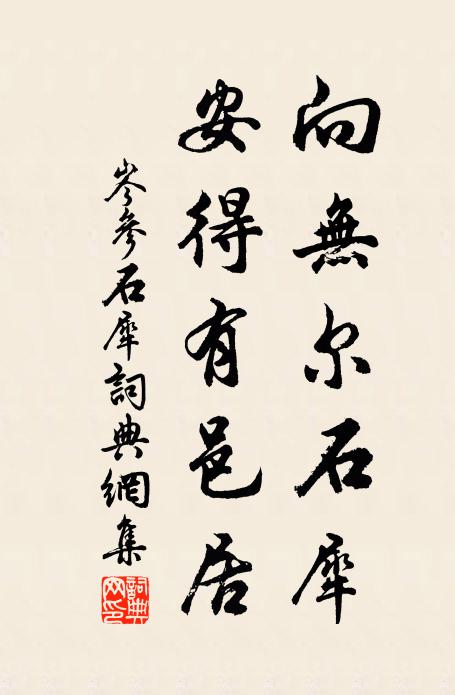 向無尔石犀
安得有邑居
岑參石犀詞典網集
詞典網印